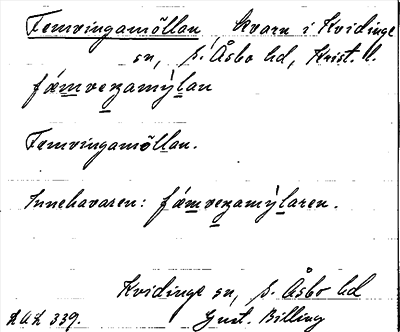 Femvingamöllan kvarn i Kvidinge
sn, s. Åsbo hd, Krist. l.
fámveŋamýlan
Femvingamöllan.
Innehavaren: fámveŋamýlaren.
Kvidinge sn, s. Åsbo hd
L.U.L. 339. Gust. Billing